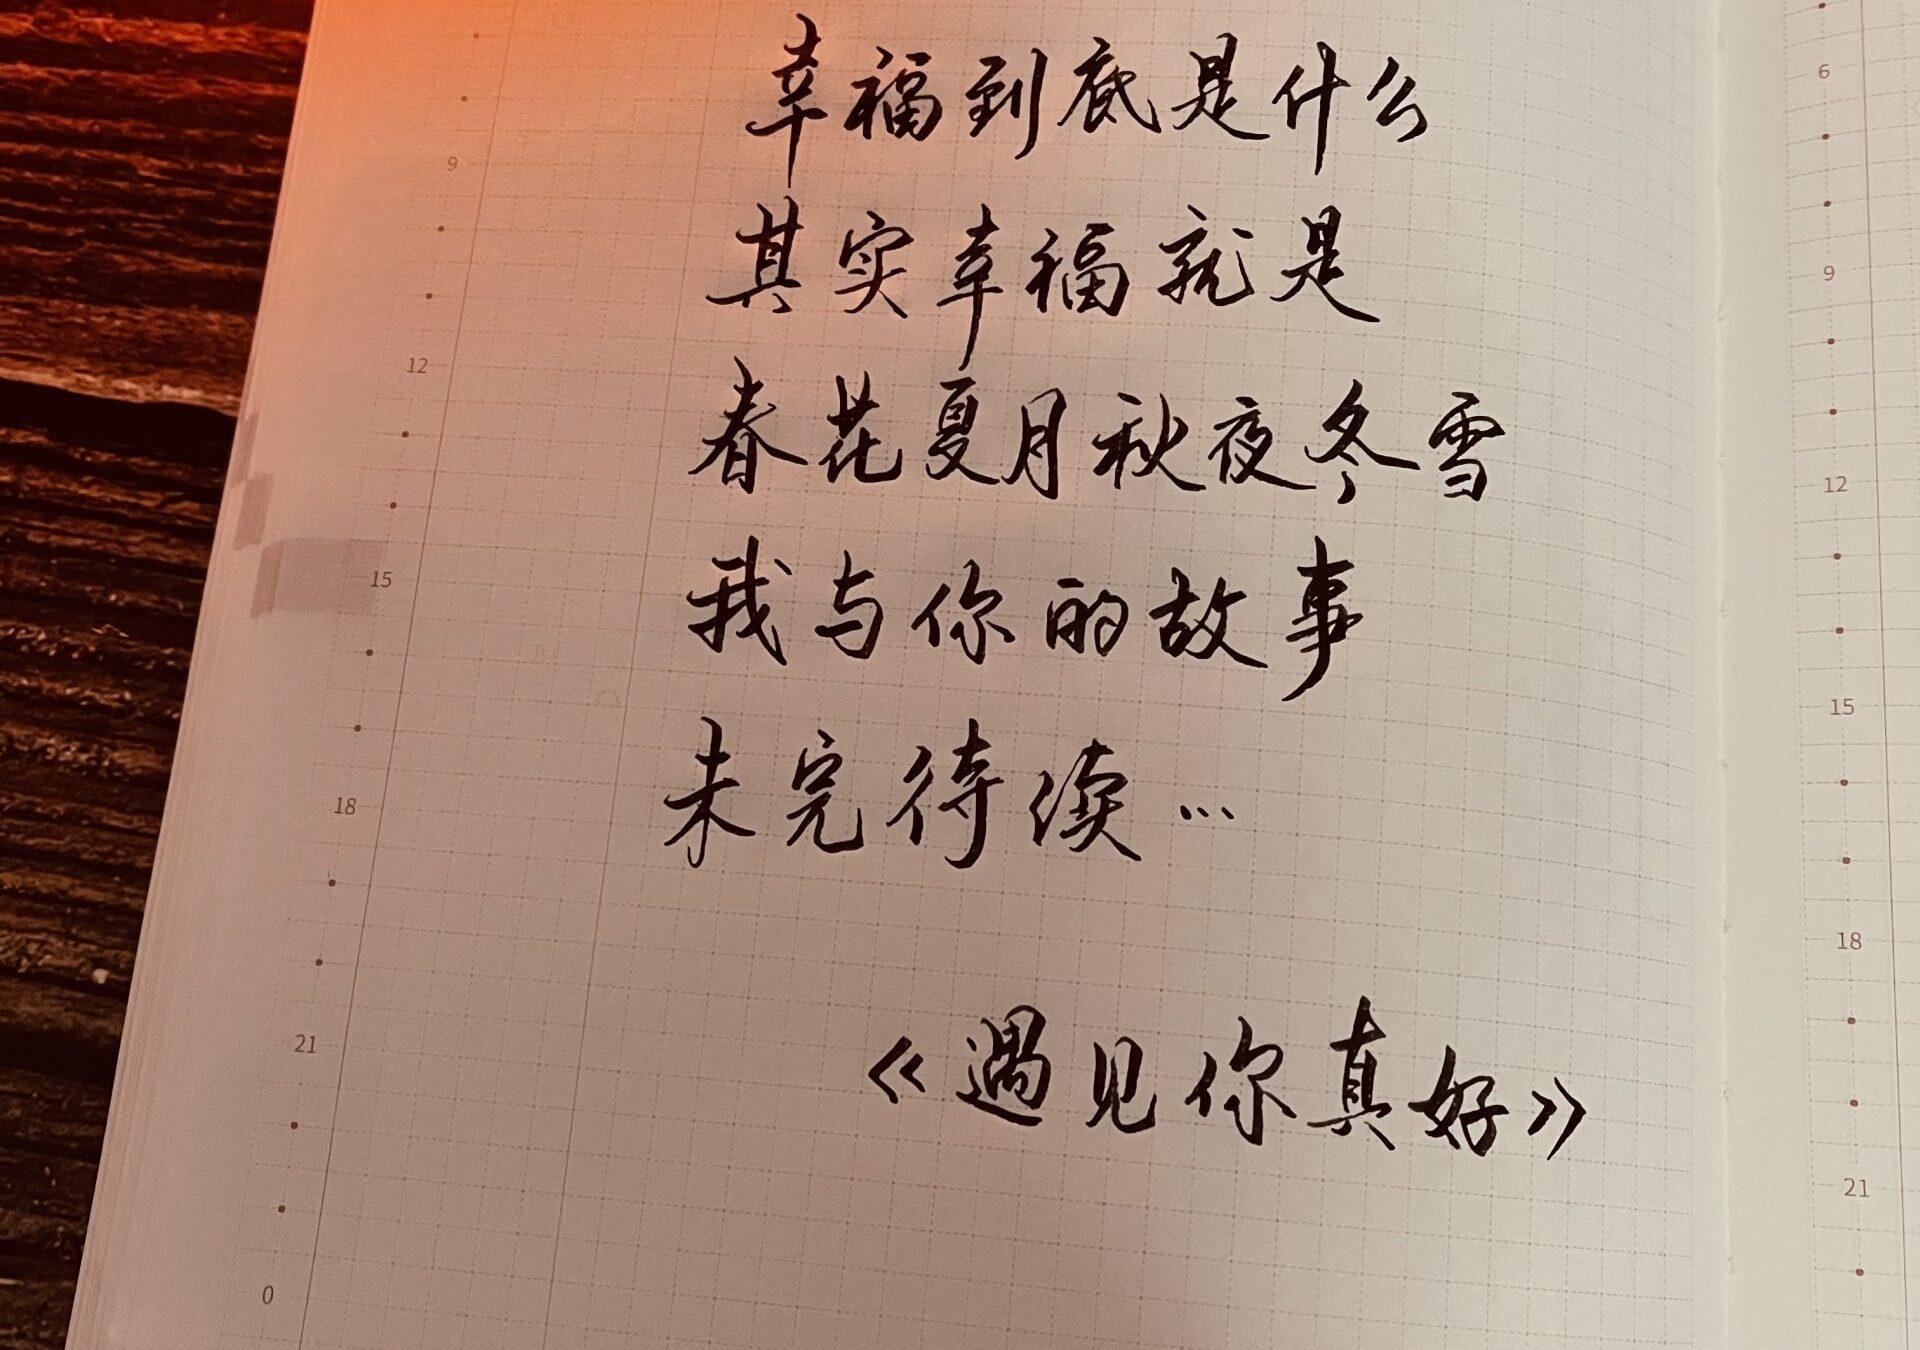 幸福到底是什么
其实幸福就是
春花夏月秋夜冬雪
我与你的故事
未完待续…
《遇见你真好》
9
12
15
18
21
0
6
9
12
15
18
21